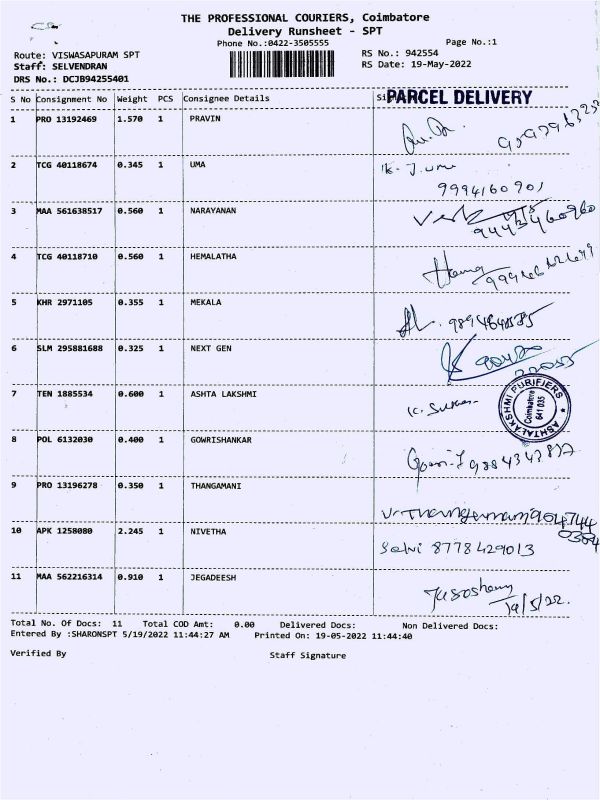 THE PROFESSIONAL COURIERS, Coimbatore
Delivery Runsheet - SPT
Phone No.:0422-3505555
Page No.:1
Route: VISWASAPURAM SPT
RS No.: 942554
Staff: SELVENDRAN
RS Date: 19-May-2022
DRS No.: DCJB94255401
S No Consignment No Weight PCS Consignee Details
PARCEL DELIVERY
1 PRO 13192469 1.570 1 PRAVIN
2 TCG 40118674 0.345 1 UMA
K. J. uma
9994160901
3 MAA 561638517 0.560 1 NARAYANAN
4 TCG 40118710 0.560 1 HEMALATHA
Hema
5 KHR 2971105 0.355 1 MEKALA
6 SLM 295881688 0.325 1 NEXT GEN
7 TEN 1885534 0.600 1 ASHTA LAKSHMI
ASHTALAKSHMI PURIFIERS
Coimbatore
641 035
8 POL 6132030 0.400 1 GOWRISHANKAR
9 PRO 13196278 0.350 1 THANGAMANI
10 APK 1258080 2.245 1 NIVETHA
Selvi 8778429013
11 MAA 562216314 0.910 1 JEGADEESH
19/5/22.
Total No. Of Docs: 11 Total COD Amt: 0.00 Delivered Docs: Non Delivered Docs:
Entered By :SHARONSPT 5/19/2022 11:44:27 AM Printed On: 19-05-2022 11:44:40
Verified By
Staff Signature